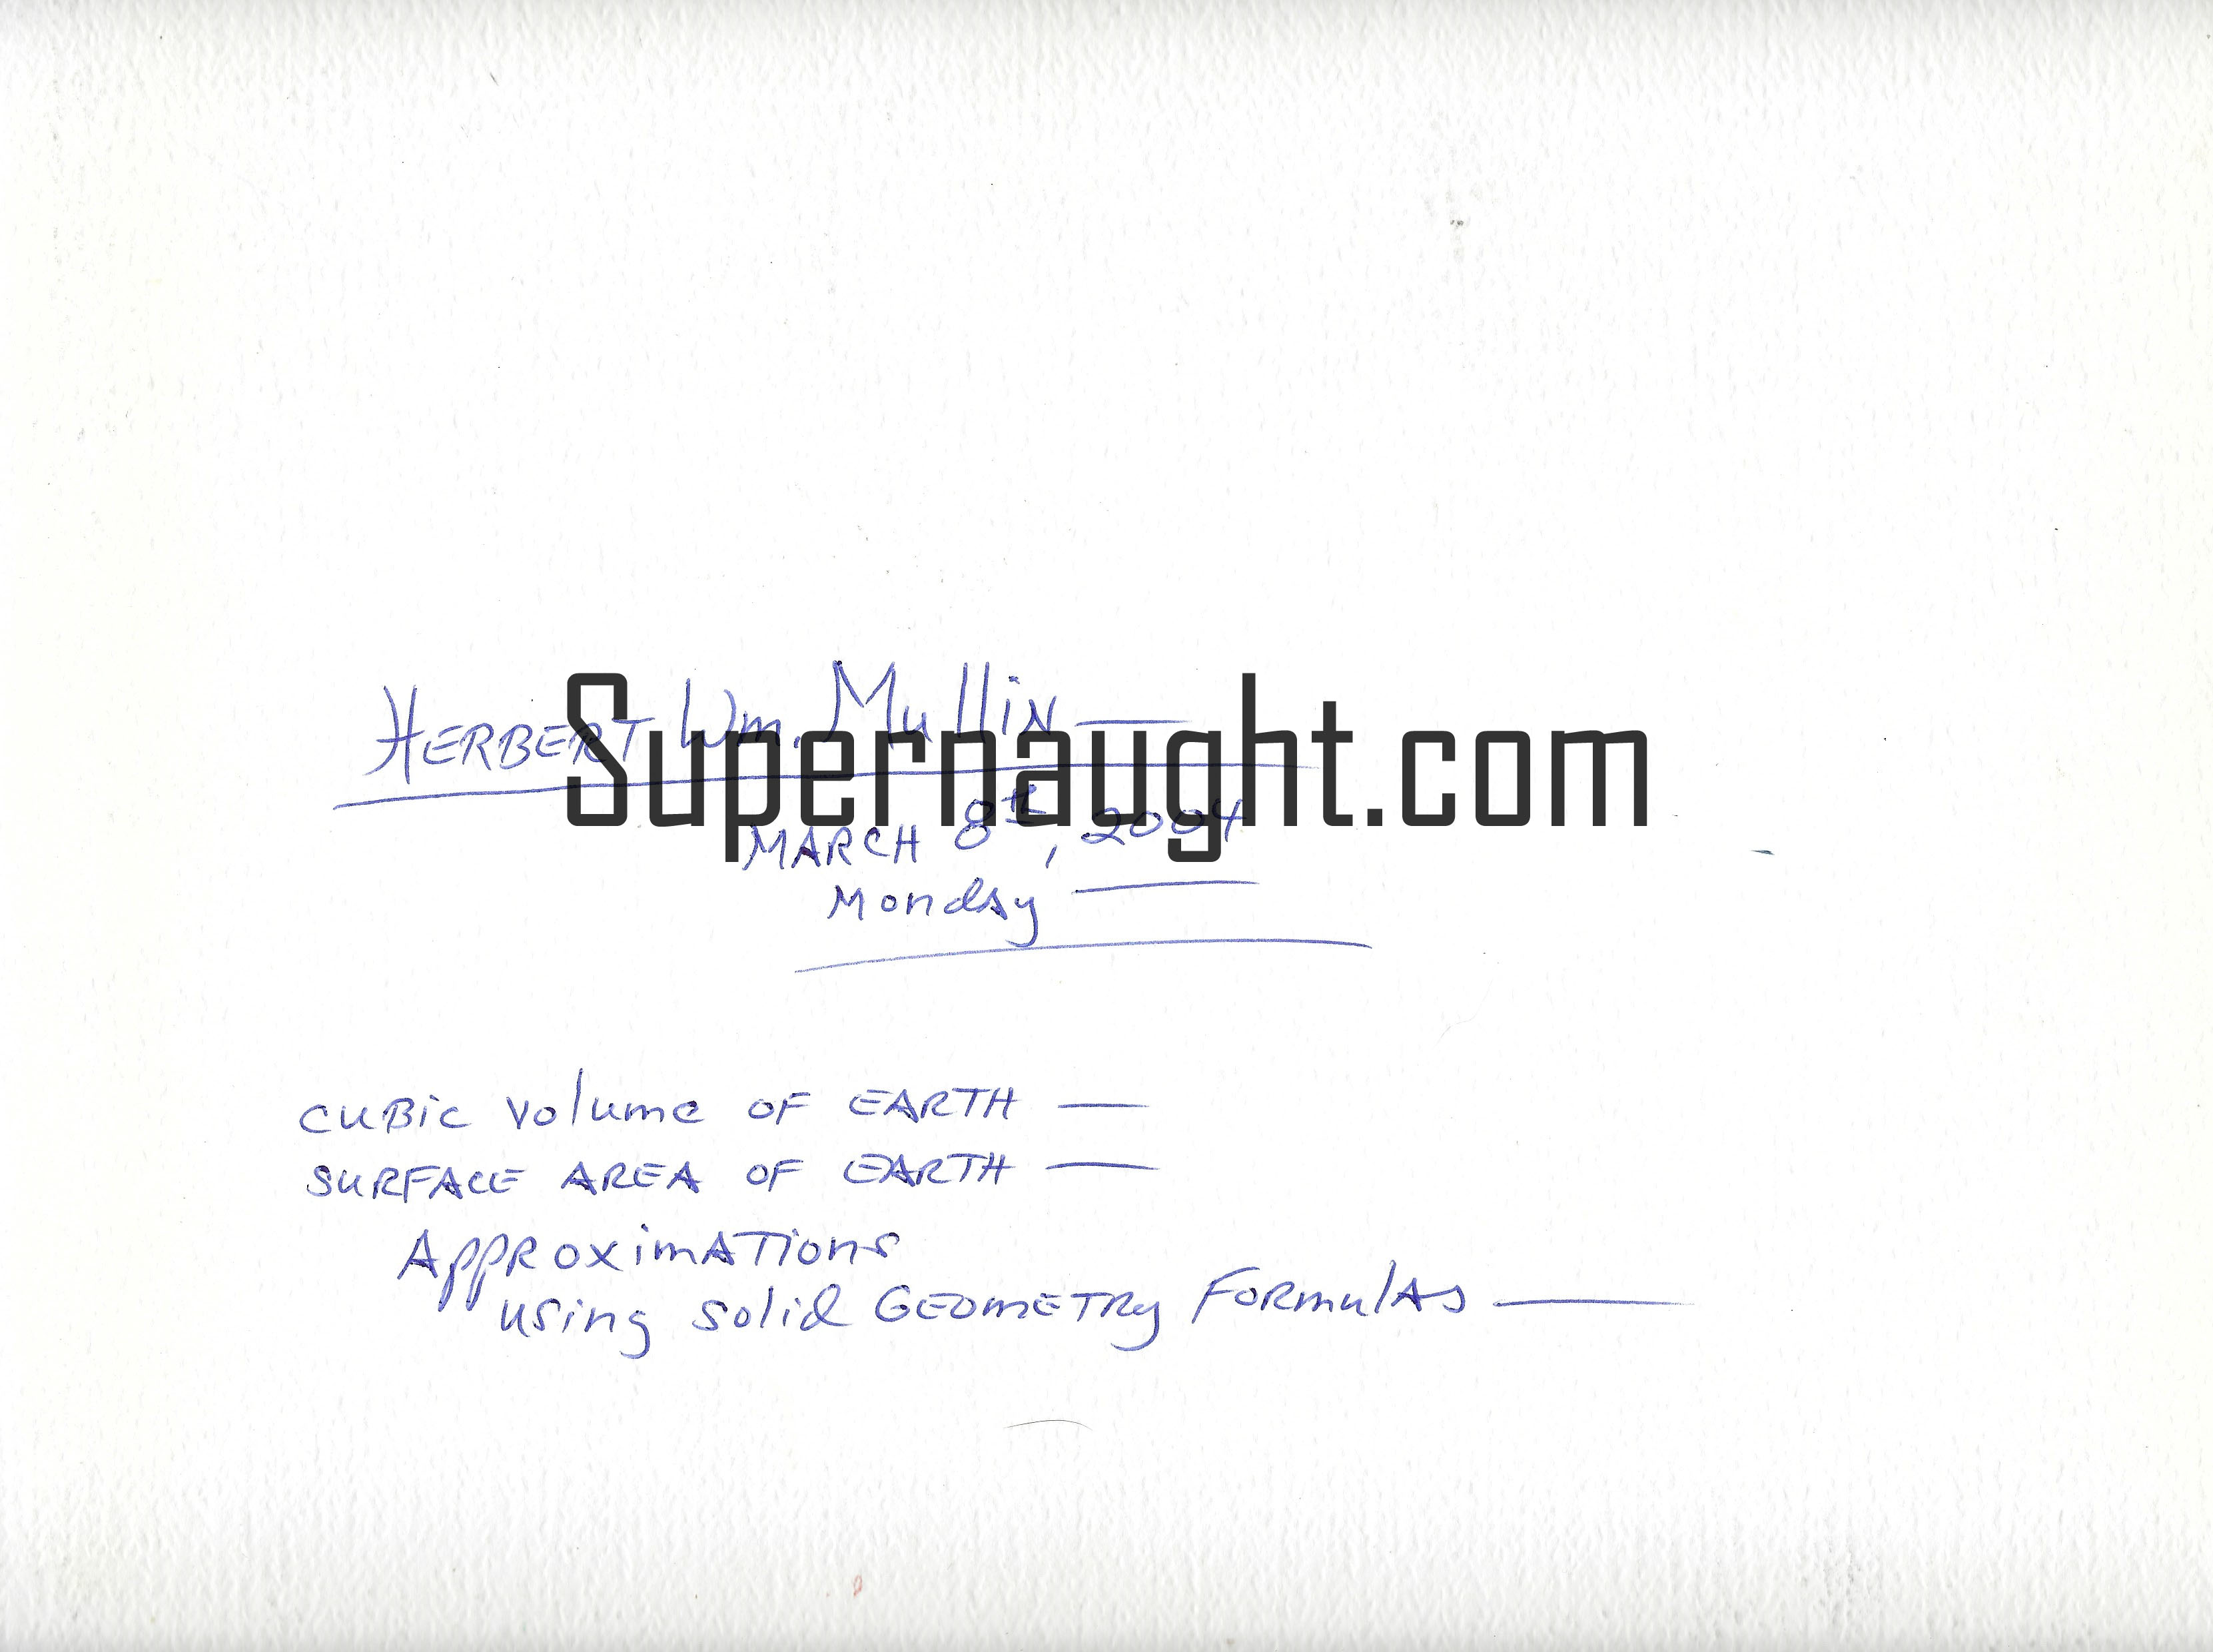 HERBERT Wm. Mullin —
Supernaught.com
MARCH 8th, 2004
Monday —
CUBIC Volume OF EARTH —
SURFACE AREA OF EARTH —
Approximations
using solid GEOMETRY FORMULAS —